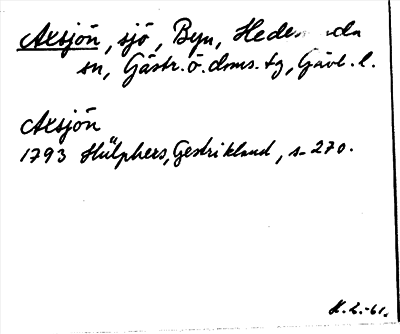 Axsjön, sjö, Byn, Hedesunda
sn, Gästr. ö. doms. tg, Gävl. l.
Axsjön
1793 Hülphers, Gestrikland, s. 270.
K.L.-61.